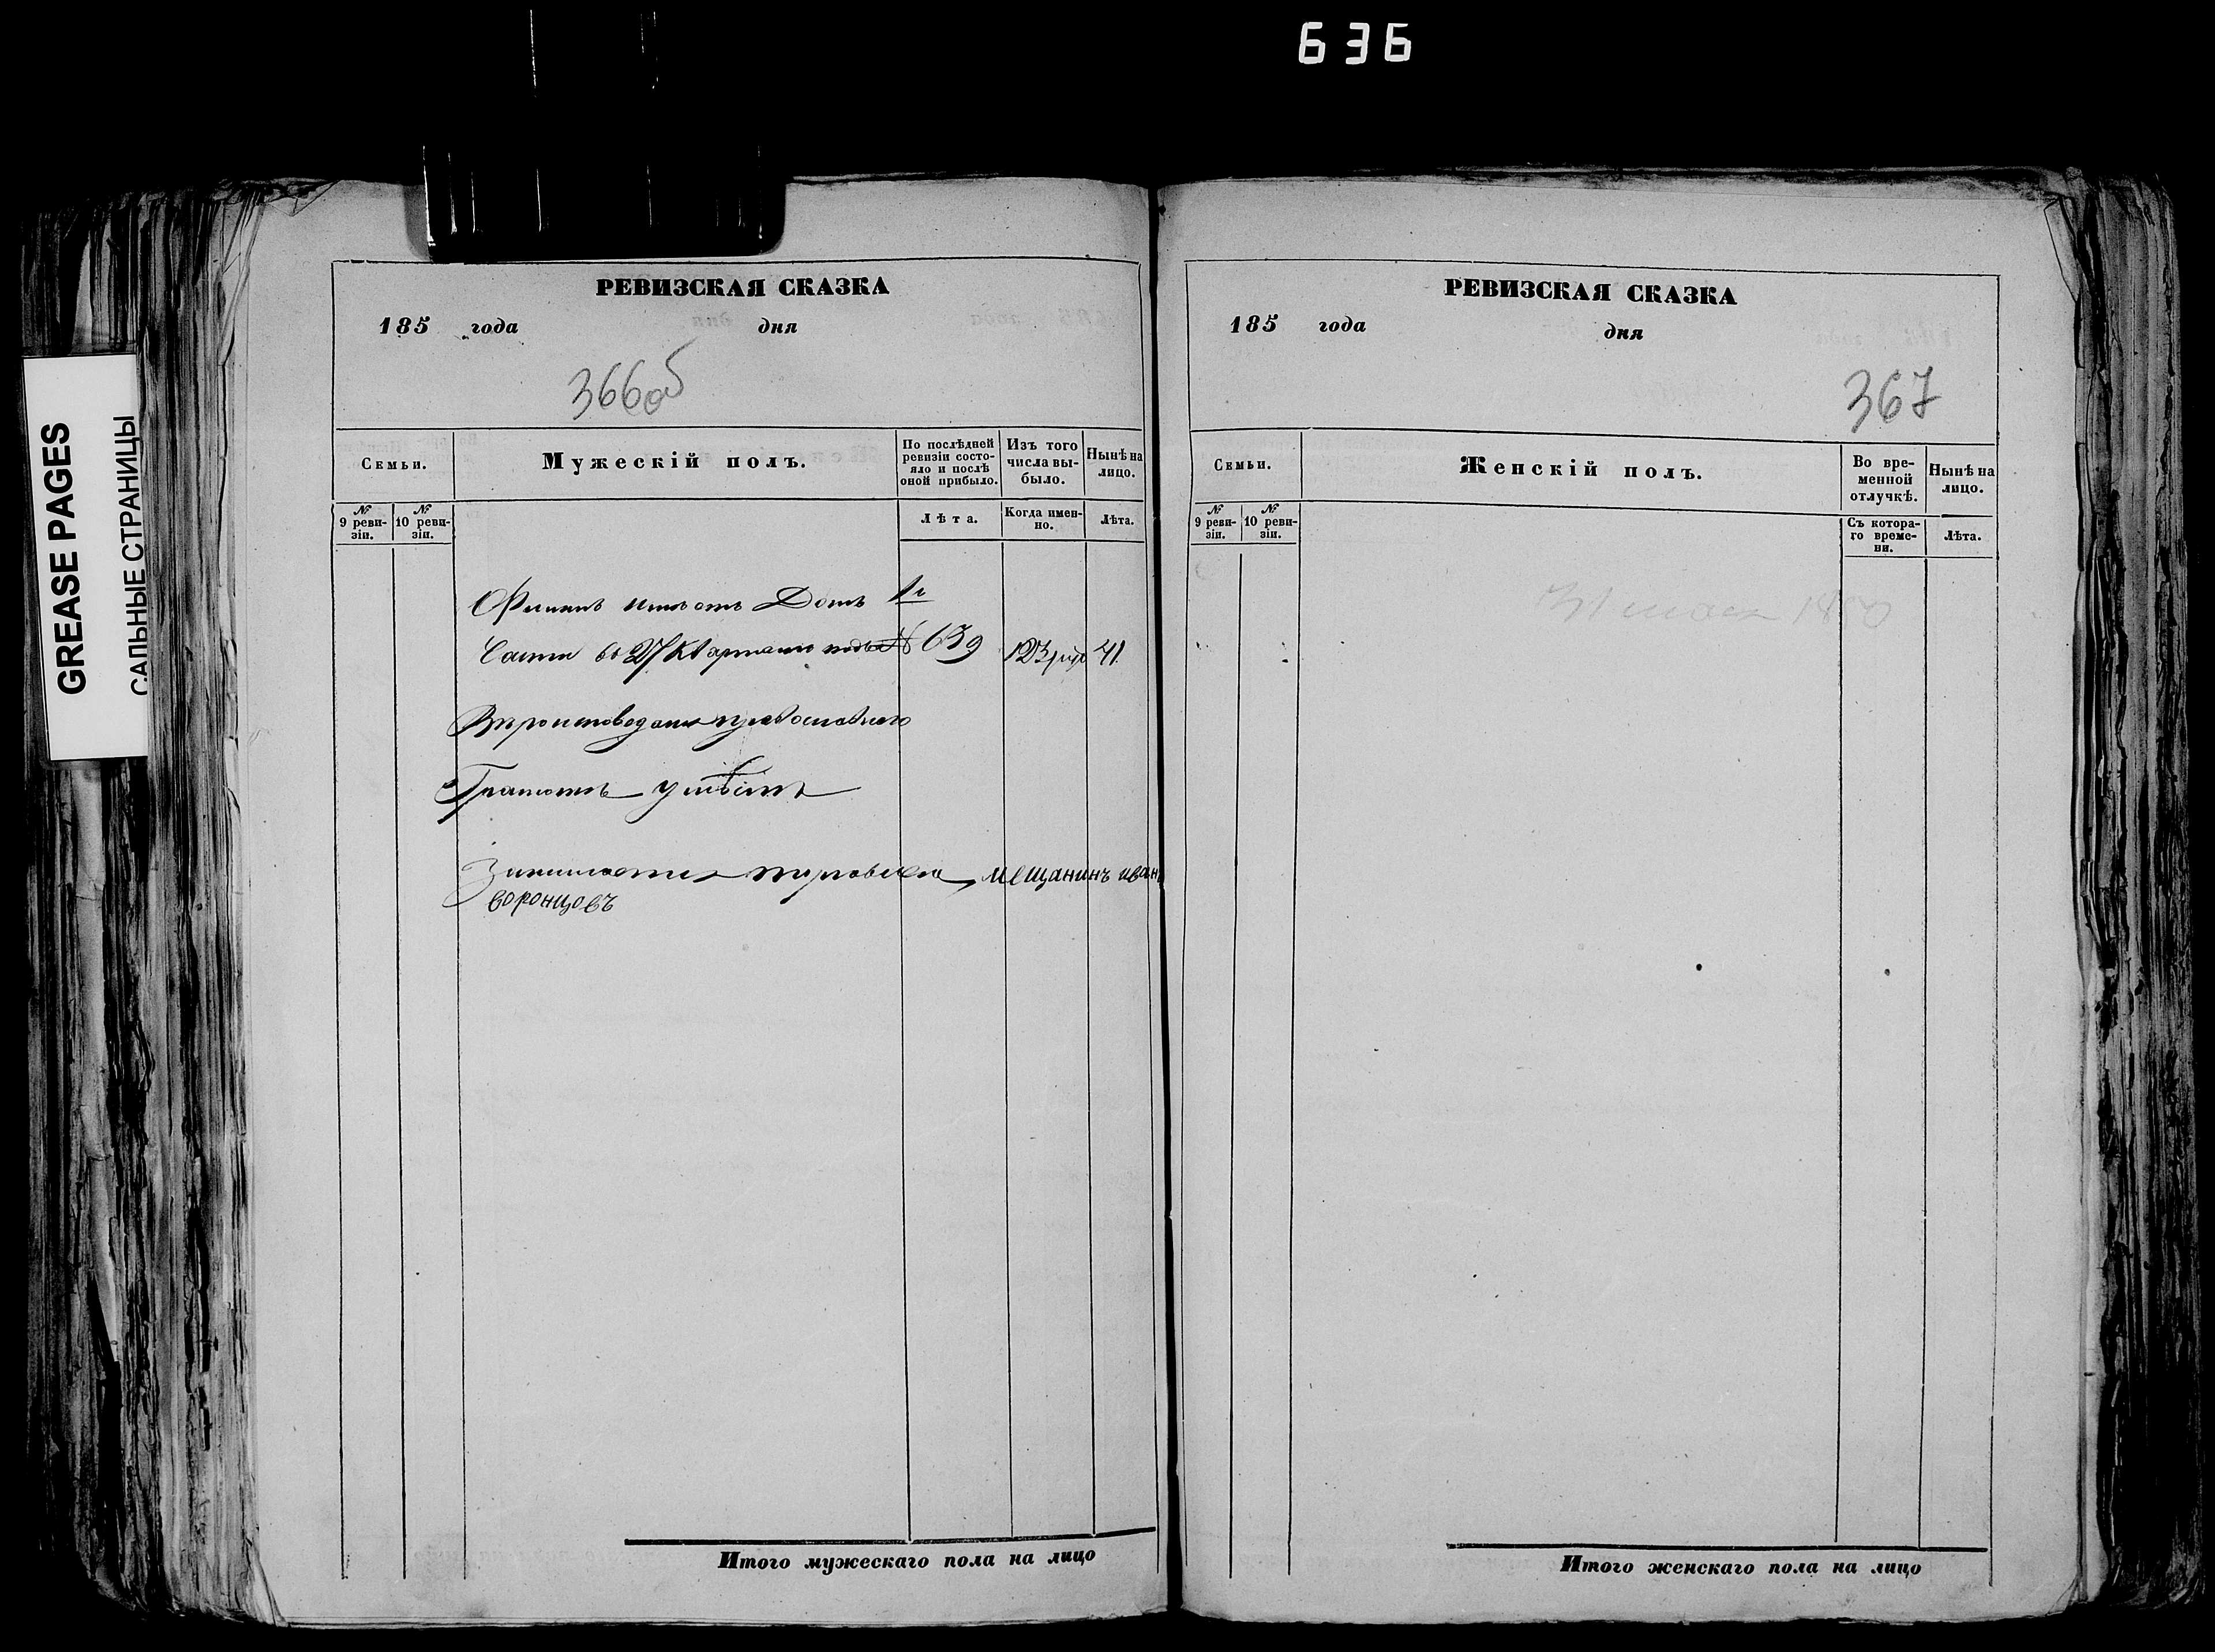 636
GREASE PAGES
САЛЬНЫЕ СТРАНИЦЫ
РЕВИЗСКАЯ СКАЗКА
185 года дня
366об
Семьи.
Мужескій полъ.
По послѣдней ревизіи состояло и послѣ оной прибыло.
Изъ того числа выбыло.
Нынѣ на лицо.
№ 9 ревизіи.
№ 10 ревизіи.
Лѣта.
Когда именно.
Лѣта.
домъ 1й
Части во 27 кварталѣ подъ № 639
41
Вѣроисповеданія православнаго
Грамотѣ умѣетъ
Занимается торговлею, мещанинъ иванъ
воронцовъ
Итого мужескаго пола на лицо
РЕВИЗСКАЯ СКАЗКА
185 года дня
367
Семьи.
Женскій полъ.
Во временной отлучкѣ.
Нынѣ на лицо.
№ 9 ревизіи.
№ 10 ревизіи.
Съ котораго времени.
Лѣта.
Итого женскаго пола на лицо